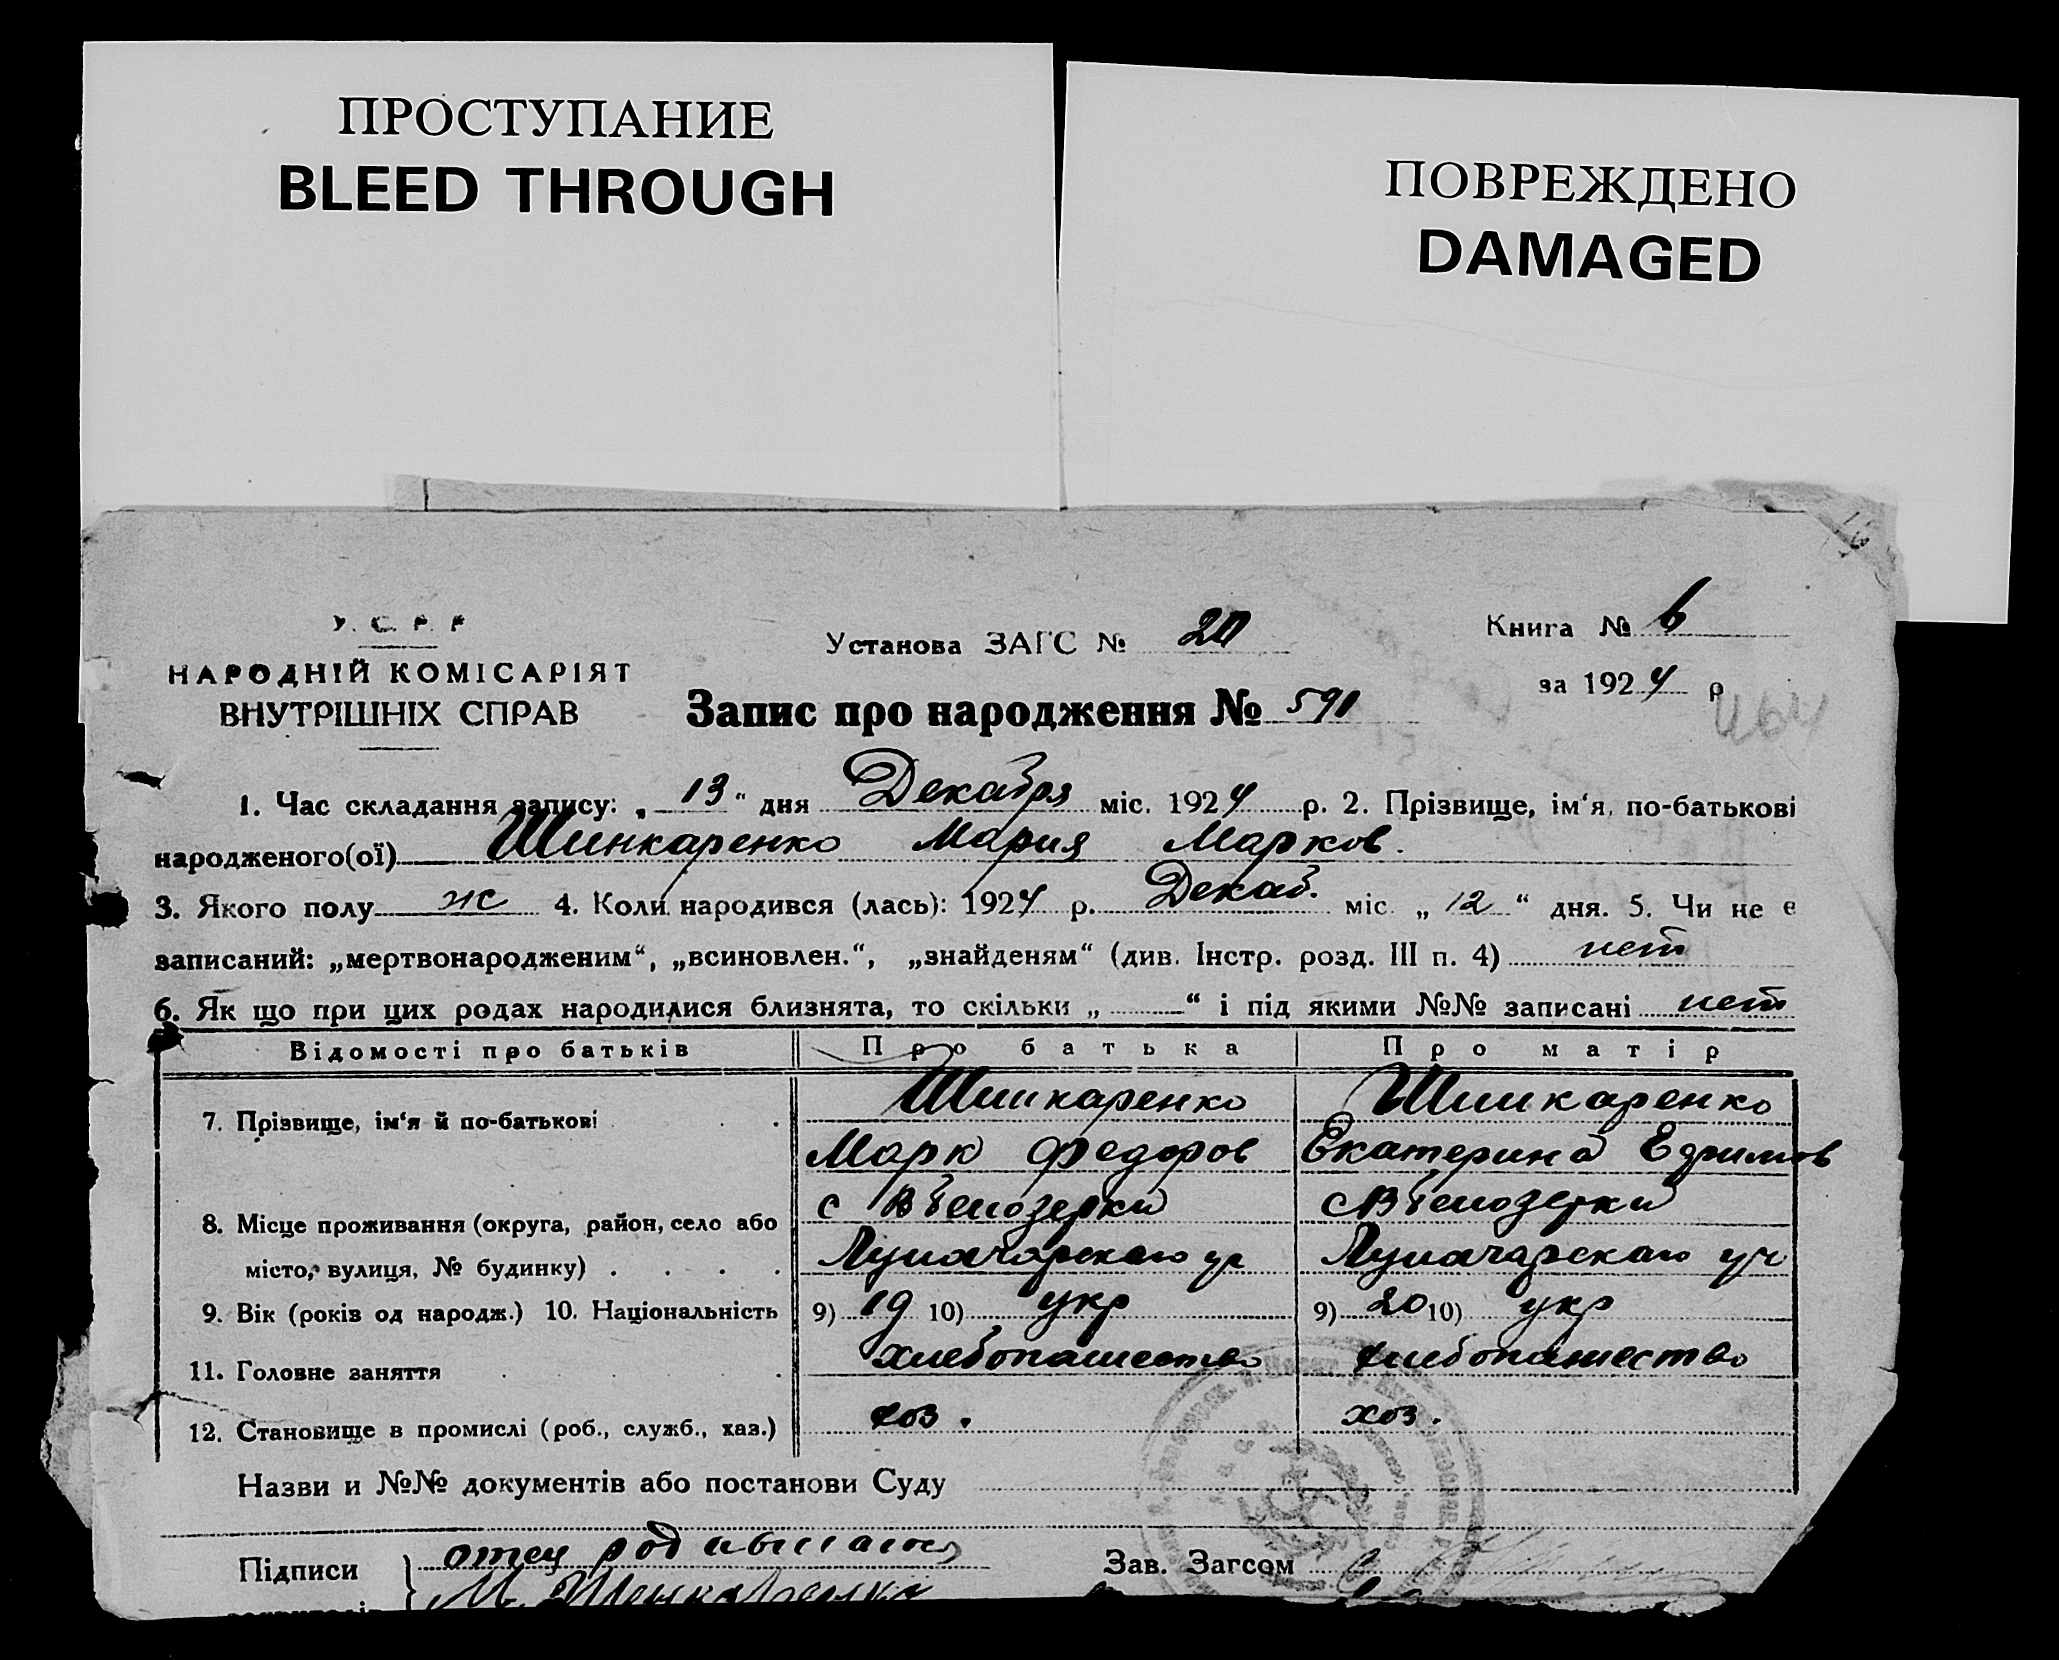 ПРОСТУПАНИЕ
BLEED THROUGH
ПОВРЕЖДЕНО
DAMAGED
У. С. Р. Р.
НАРОДНІЙ КОМІСАРІЯТ
ВНУТРІШНІХ СПРАВ
Установа ЗАГС № 20
Книга № 6
за 1924 р
Запис про народження № 591
1. Час складання запису: „ 13 “ дня Декабря міс. 1924 р. 2. Прізвище, ім‘я, по-батькові
народженого(ої) Шинкаренко Мария Марков.
3. Якого полу ж 4. Коли народився (лась): 1924 р. Декаб. міс. „ 12 “ дня. 5. Чи не є
записаний: „мертвонародженим“, „всиновлен.“, „знайденям“ (див. Інстр. розд. III п. 4) нет
6. Як що при цих родах народилися близнята, то скільки „ “ і під якими №№ записані нет
Відомості про батьків Про батька Про матір
7. Прізвище, ім‘я й по-батькові Шинкаренко Шинкаренко
Марк Федоров Екатерина Ефимов
8. Місце проживання (округа, район, село або с Белозерки с Белозерки
місто, вулиця, № будинку) Луначарскаго Луначарскаго уч
9. Вік (років од народж.) 10. Національність 9) 19 10) укр 9) 20 10) укр
11. Головне заняття хлебопашество хлебопашество
12. Становище в промислі (роб., служб., хаз.) хоз. хоз.
Назви и №№ документів або постанови Суду
Підписи отец родившаго Зав. Загсом
М. Шенкаренко